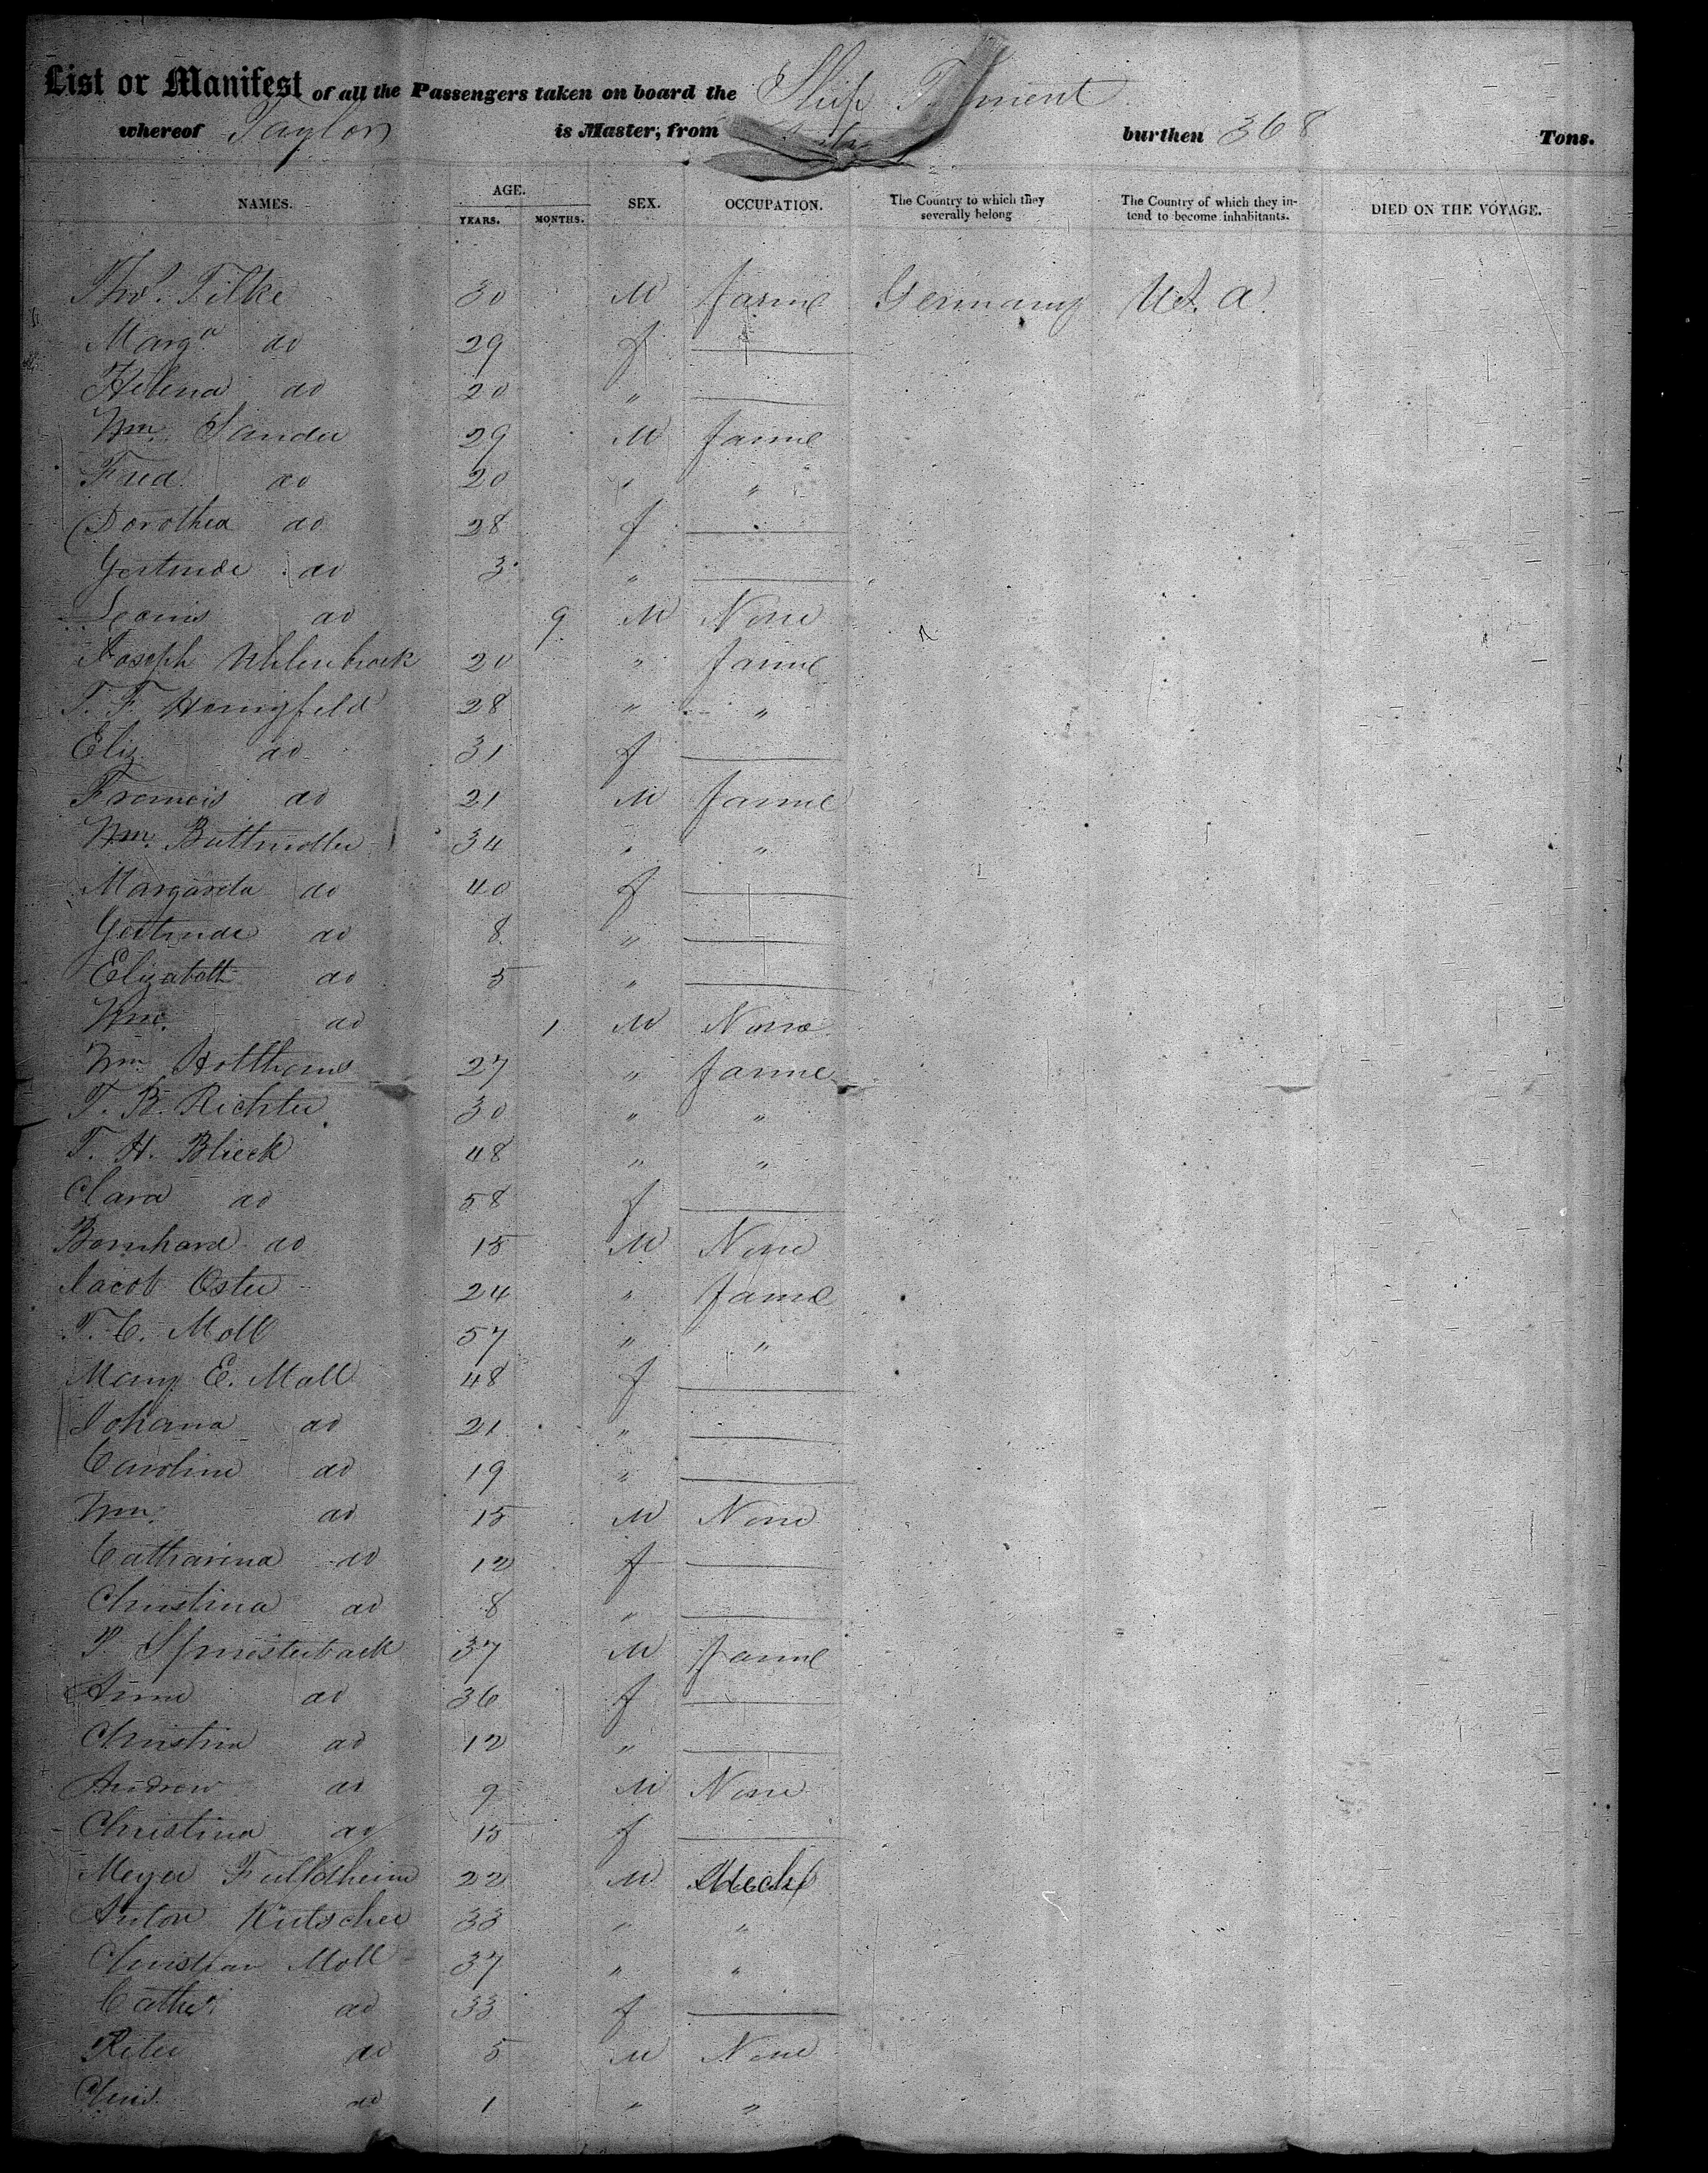 List or Manifest of all the Passengers taken on board the Ship
whereof Taylor is Master, from burthen 368 Tons.
NAMES. AGE. YEARS. MONTHS. SEX. OCCUPATION. The Country to which they severally belong The Country of which they intend to become inhabitants. DIED ON THE VOYAGE.
Thos. Tilke 30 M farme Germany U.S.A.
Marga do 29 f
Helena do 20 "
Wm. Sander 29 M farme
Fred do 20 " "
Dorothea do 28 f
Gertrude do 3 "
do 9 M None
Joseph Uhlenbrock 20 " farme
T. F. Honigfeld 28 " "
Eliz. do 31 f
Francis do 21 M farme
Wm. 34 " "
Margareta do 40 f
Gertrude do 8 "
Elizabeth do 5 "
Wm. do 1 M None
Wm. Holthaus 27 " farme
T. B. Richter 30 " "
T. H. Blieck 48 " "
Clara do 58 f
Bernhard do 15 M None
Jacob Oster 24 " farme
T. C. Moll 57 " "
Mary E. Moll 48 f
Johanna do 21 "
Caroline do 19 "
Wm. do 15 M None
Catharina do 12 f
Christina do 8 "
37 M farme
Anna do 36 f
Christina do 12 "
Andrew do 9 M None
Christina do 15 f
Meyer Fulldheim 22 M Mech
Anton Kutscher 33 " "
Christian Moll 37 " "
Cath. do 33 f
Peter do 5 M None
Chris. do 1 " "